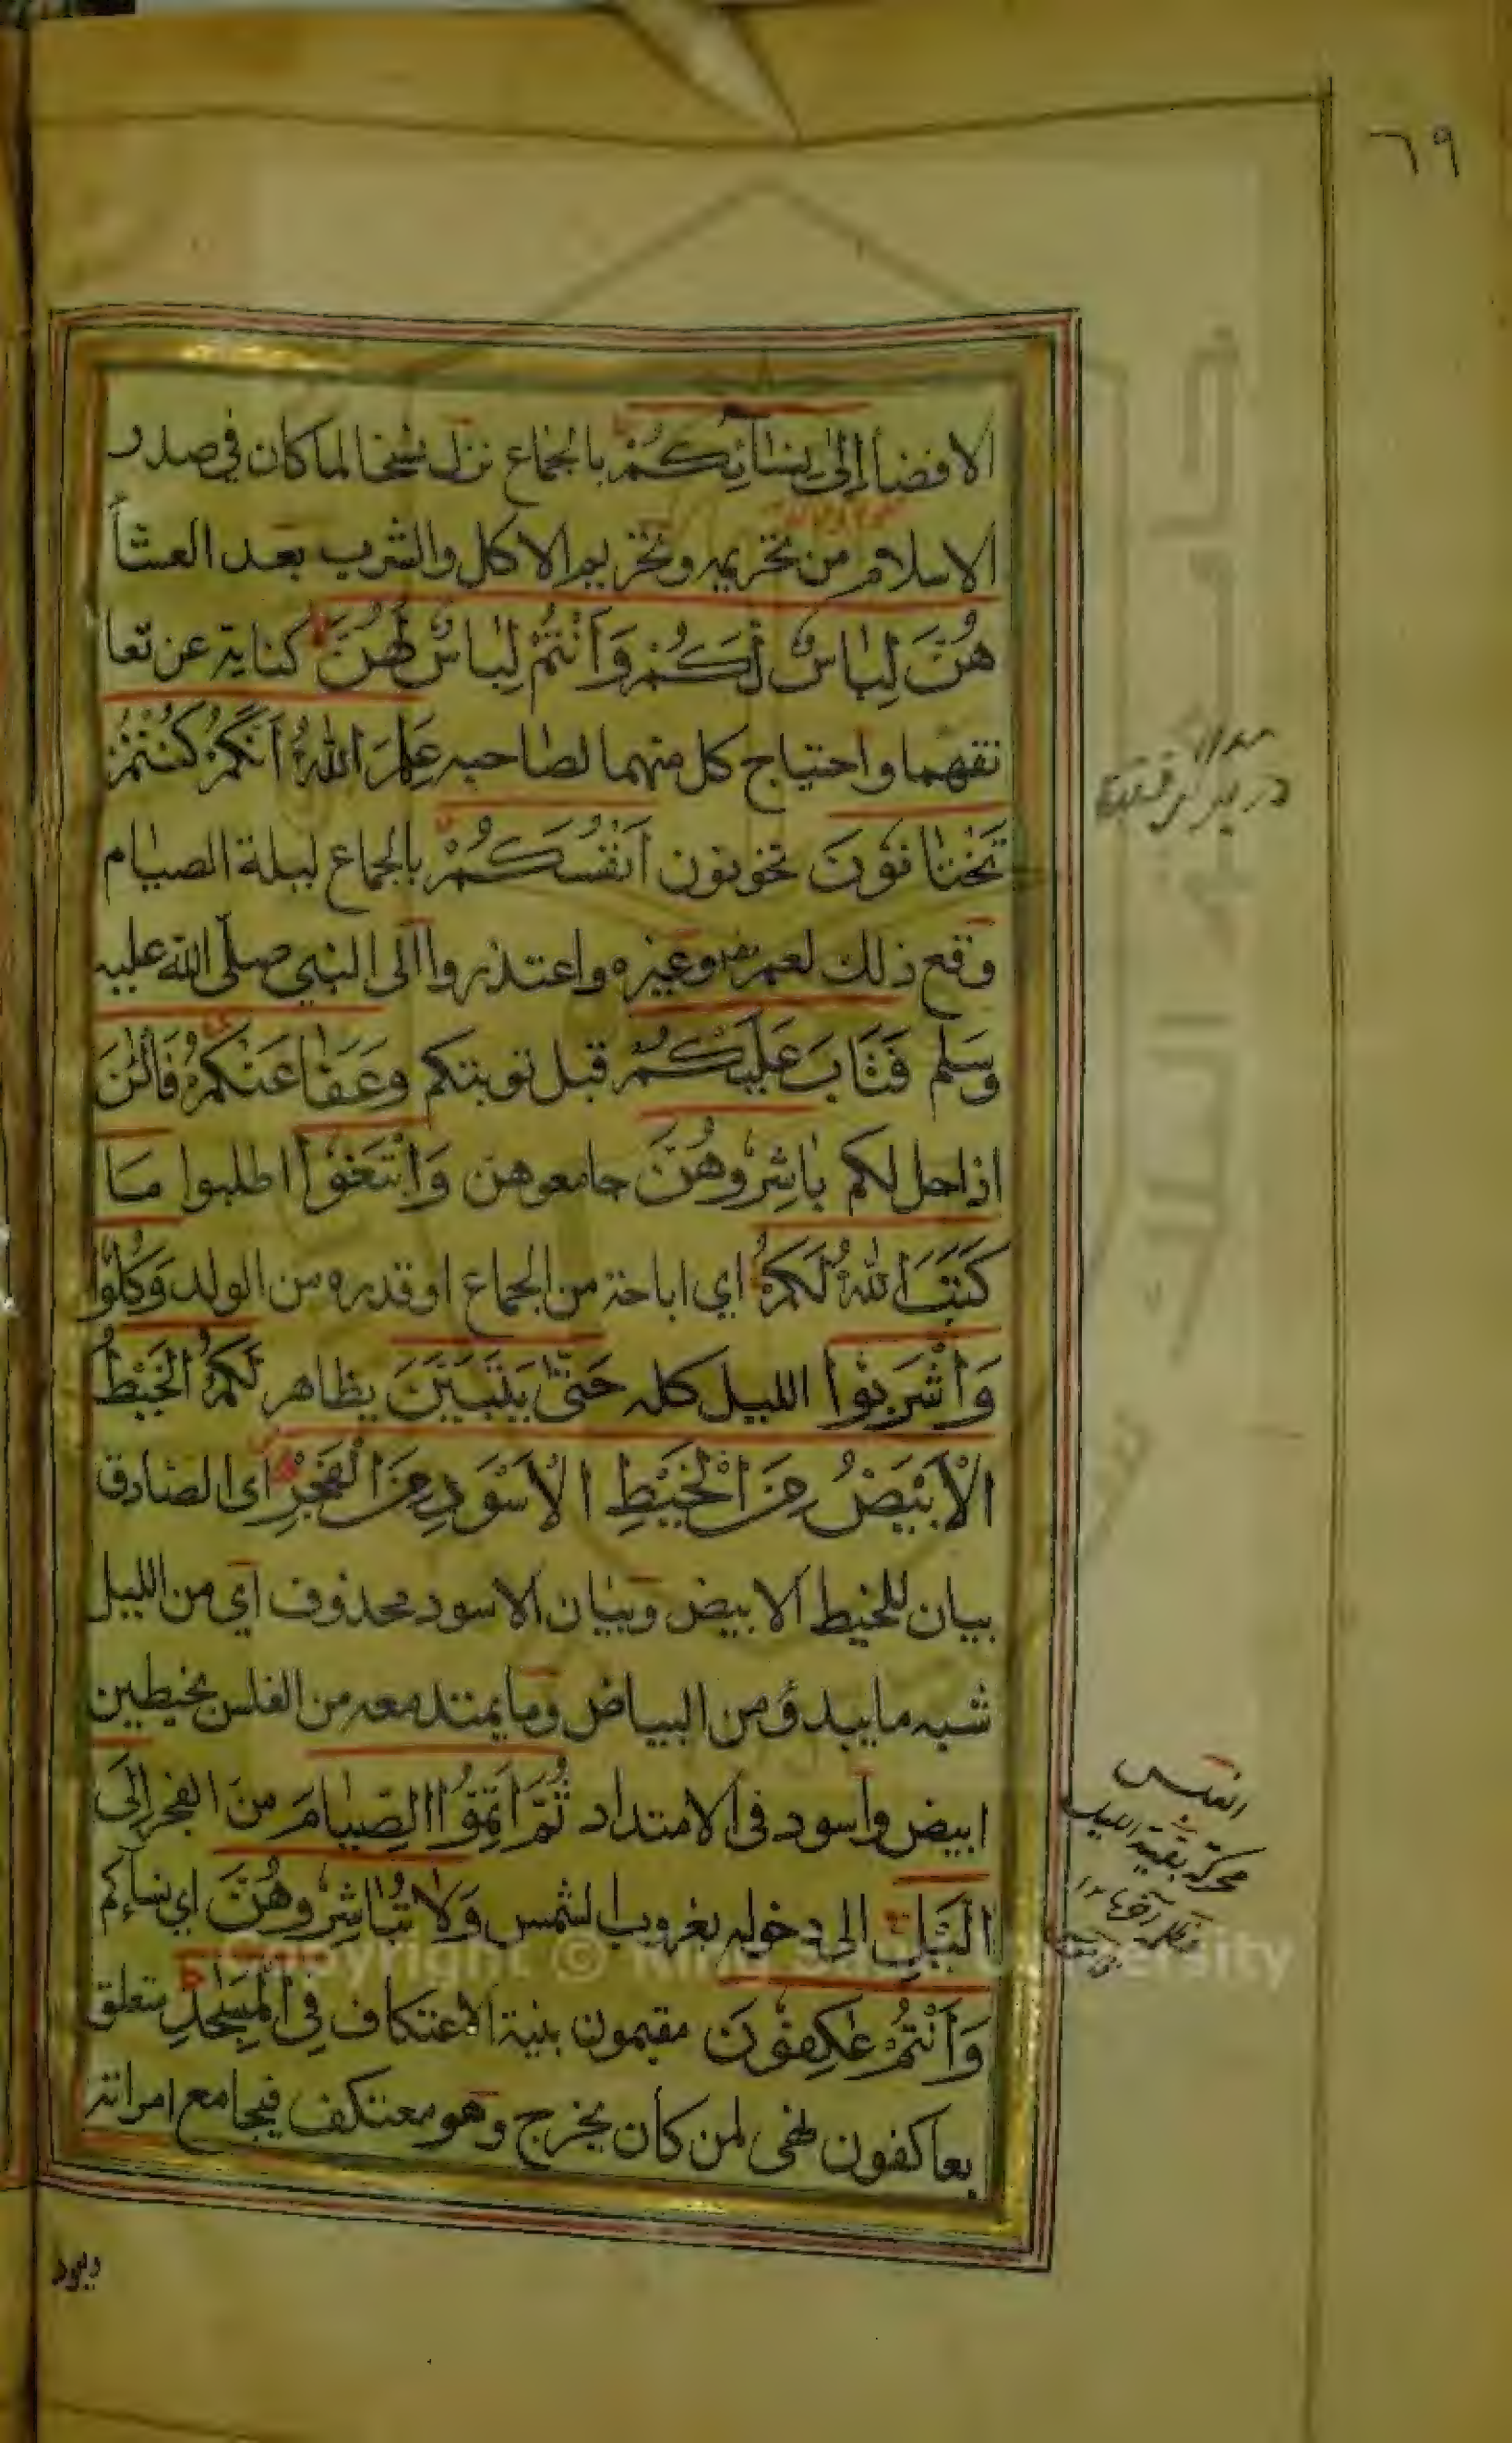 ٦٩
الافضاء إِلىٰ نِسَآئِكُمْ بالجماع نزل نسخا لما كان في صدر
الاسلام من تحريمه وتحريم الاكل والشرب بعد العشآء
هُنَّ لِبَاسٌ لَكُمْ وَاَنْتُمْ لِبَاسٌ لَهُنَّ كناية عن تعا
نقهما واحتياج كل منهما لصاحبه عَلِمَ اللهُ اَنَّكُمْ كُنْتُمْ
تَخْتَانُونَ تخونون اَنْفُسَكُمْ بالجماع ليلة الصيام
وقع ذلك لعمر وغيره واعتذروا الى النبي صلى الله عليه
وسلم فَتَابَ عَلَيْكُمْ قبل توبتكم وَعَفَا عَنْكُمْ فَالْئٰنَ
اذا حل لكم بَاشِرُوهُنَّ جامعوهن وَابْتَغُوا اطلبوا مَا
كَتَبَ اللهُ لَكُمْ اي اباحة من الجماع او قدره من الولد وَكُلُوا
وَاشْرَبُوا الليل كله حَتّىٰ يَتَبَيَّنَ يظاهر لَكُمُ الْخَيْطُ
الْاَبْيَضُ مِنَ الْخَيْطِ الْاَسْوَدِ مِنَ الْفَجْرِ اى الصادق
بيان للخيط الابيض وبيان الاسود محذوف اي من الليل
شبه ما يبدؤ من البياض وما يمتد معه من الغلس بخيطين
ابيض واسود فى الامتداد ثُمَّ اَتِمُّوا الصِّيَامَ من الفجر اِلَى
الَّيْلِ الى دخوله بغروب الشمس وَلَا تُبَاشِرُوهُنَّ اي نساءكم
وَاَنْتُمْ عٰكِفُونَ مقيمون بنية الاعتكاف فِي الْمَسٰجِدِ متعلق
بعاكفون نهى لمن كان يخرج وهو معتكف فيجامع امراته
ويعود
الغلس
محركة بقية الليل
Copyright © King Saud University